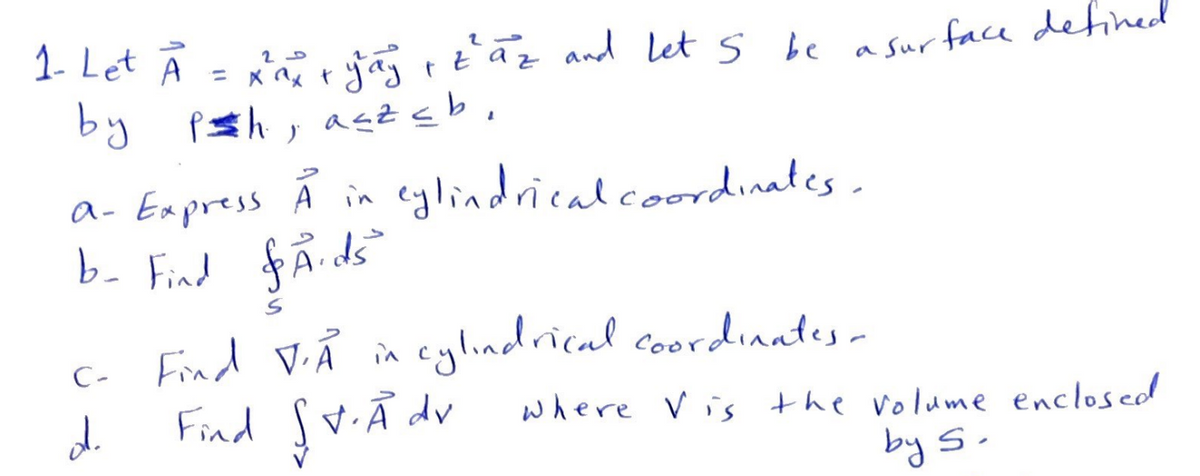 1- Let A⃗ = x² a⃗x + y² a⃗y + z² a⃗z and Let S be a surface defined
by ρ≤h, a≤z≤b,
a- Express A⃗ in cylindrical coordinates.
b- Find ∮S A⃗. ds⃗
c- Find ∇.A⃗ in cylindrical coordinates-
d. Find ∫V ∇.A⃗ dv where V is the volume enclosed
by S.